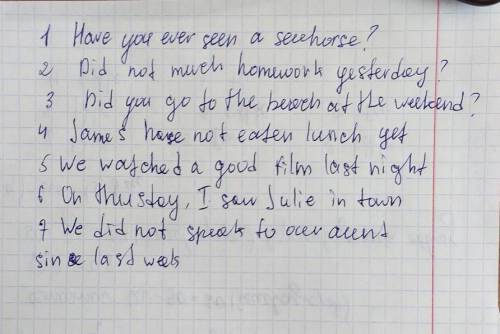 1 Have you ever seen a seahorse?
2 Did not much homework yesterday?
3 Did you go to the beach at the weekend?
4 James have not eaten lunch yet
5 We watched a good film last night
6 On thusday, I saw Julie in town
7 We did not speak to our aunt
since last week